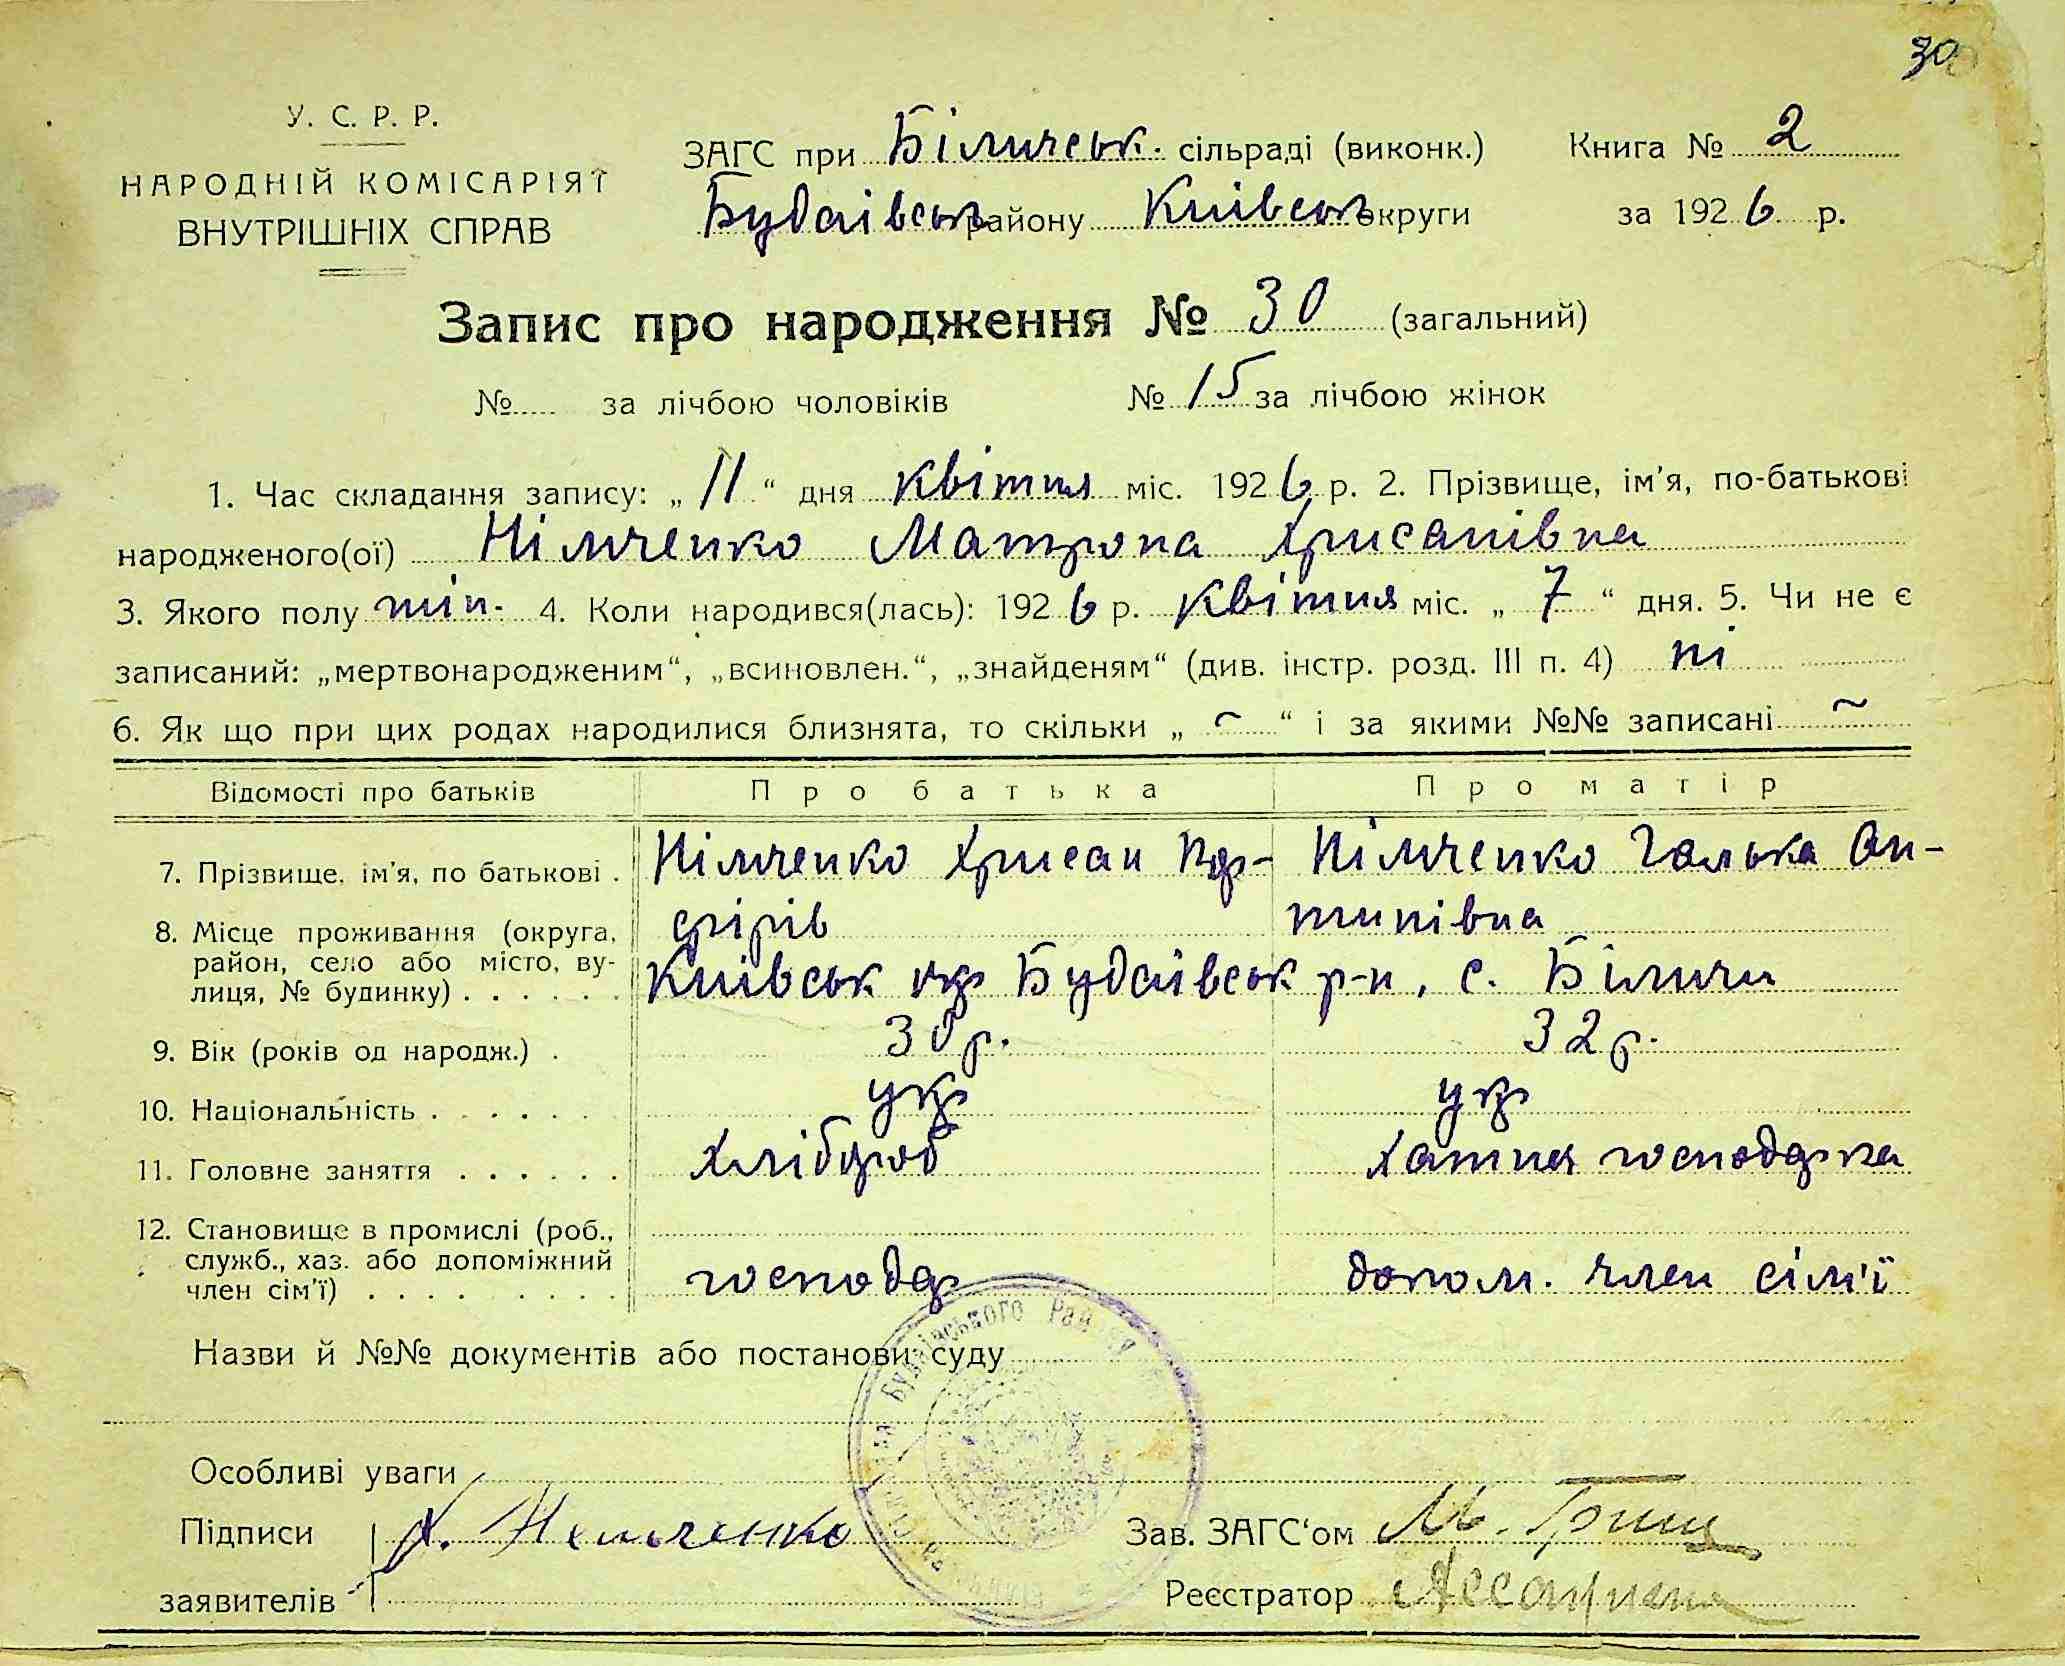 30
У. С. Р. Р.
НАРОДНІЙ КОМІСАРІЯТ
ВНУТРІШНІХ СПРАВ
ЗАГС при Біличськ. сільраді (виконк.) Книга № 2
Будаівськ району Київськ округи за 1926 р.
Запис про народження № 30 (загальний)
№ за лічбою чоловіків № 15 за лічбою жінок
1. Час складання запису: „ 11 “ дня квітня міс. 1926 р. 2. Прізвище, ім'я, по-батькові
народженого(ої) Німченко Матрона Хрисанівна
3. Якого полу жін. 4. Коли народився(лась): 1926 р. квітня міс. „ 7 “ дня. 5. Чи не є
записаний: „мертвонародженим“, „всиновлен.“, „знайденям“ (див. інстр. розд. III п. 4) ні
6. Як що при цих родах народилися близнята, то скільки „ ~ “ і за якими №№ записані ~
Відомості про батьків Про батька Про матір
7. Прізвище, ім'я, по батькові . Німченко Хрисан Пор- Німченко Галька Ан-
фірів типівна
8. Місце проживання (округа, район, село або місто, вулиця, № будинку) . . . . . . Київськ окр Будаівськ р-н, с. Біличи
9. Вік (років од народж.) . 30 р. 32 р.
10. Національність . . . . . . укр укр
11. Головне заняття . . . . . . Хлібороб Хатня господарка
12. Становище в промислі (роб.,
служб., хаз. або допоміжний
член сім'ї) . . . . . . . . . господар допом. член сім'ї
Назви й №№ документів або постанови суду
Особливі уваги
Підписи Х. Немченко Зав. ЗАГС‘ом М. Гриш
заявителів Реєстратор
Будаївського Району